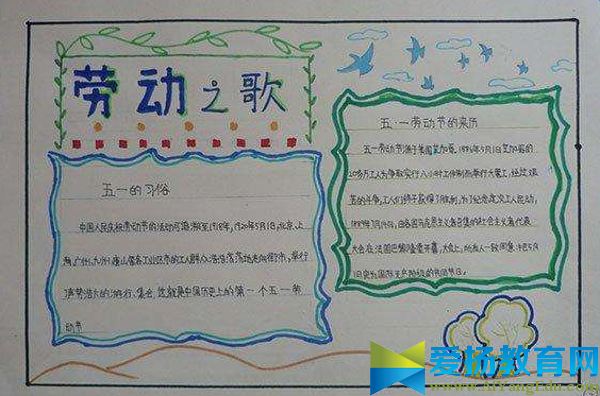 劳动之歌
五一的习俗
中国人民庆祝劳动节的活动可追溯至1918年，1920年5月1日，北京、上
海、广州、九江、唐山等各工业区市的工人群众浩浩荡荡地走向街市，举行
声势浩大的游行、集会，这就是中国历史上的第一个五一劳
动节
五·一劳动节的来历
五一劳动节源于美国芝加哥，1886年5月1日芝加哥的
20多万工人为争取实行八小时工作制而举行大罢工，经过艰
苦的斗争，工人们终于获得了胜利，为了纪念这次工人运动，
1889年7月14日，由各国马克思主义者召集的社会主义者代表
大会在法国巴黎隆重开幕，大会上，所有人一致同意，把5月
1日定为国际无产阶级的共同节日。
爱扬教育网
www.aiYangEdu.com